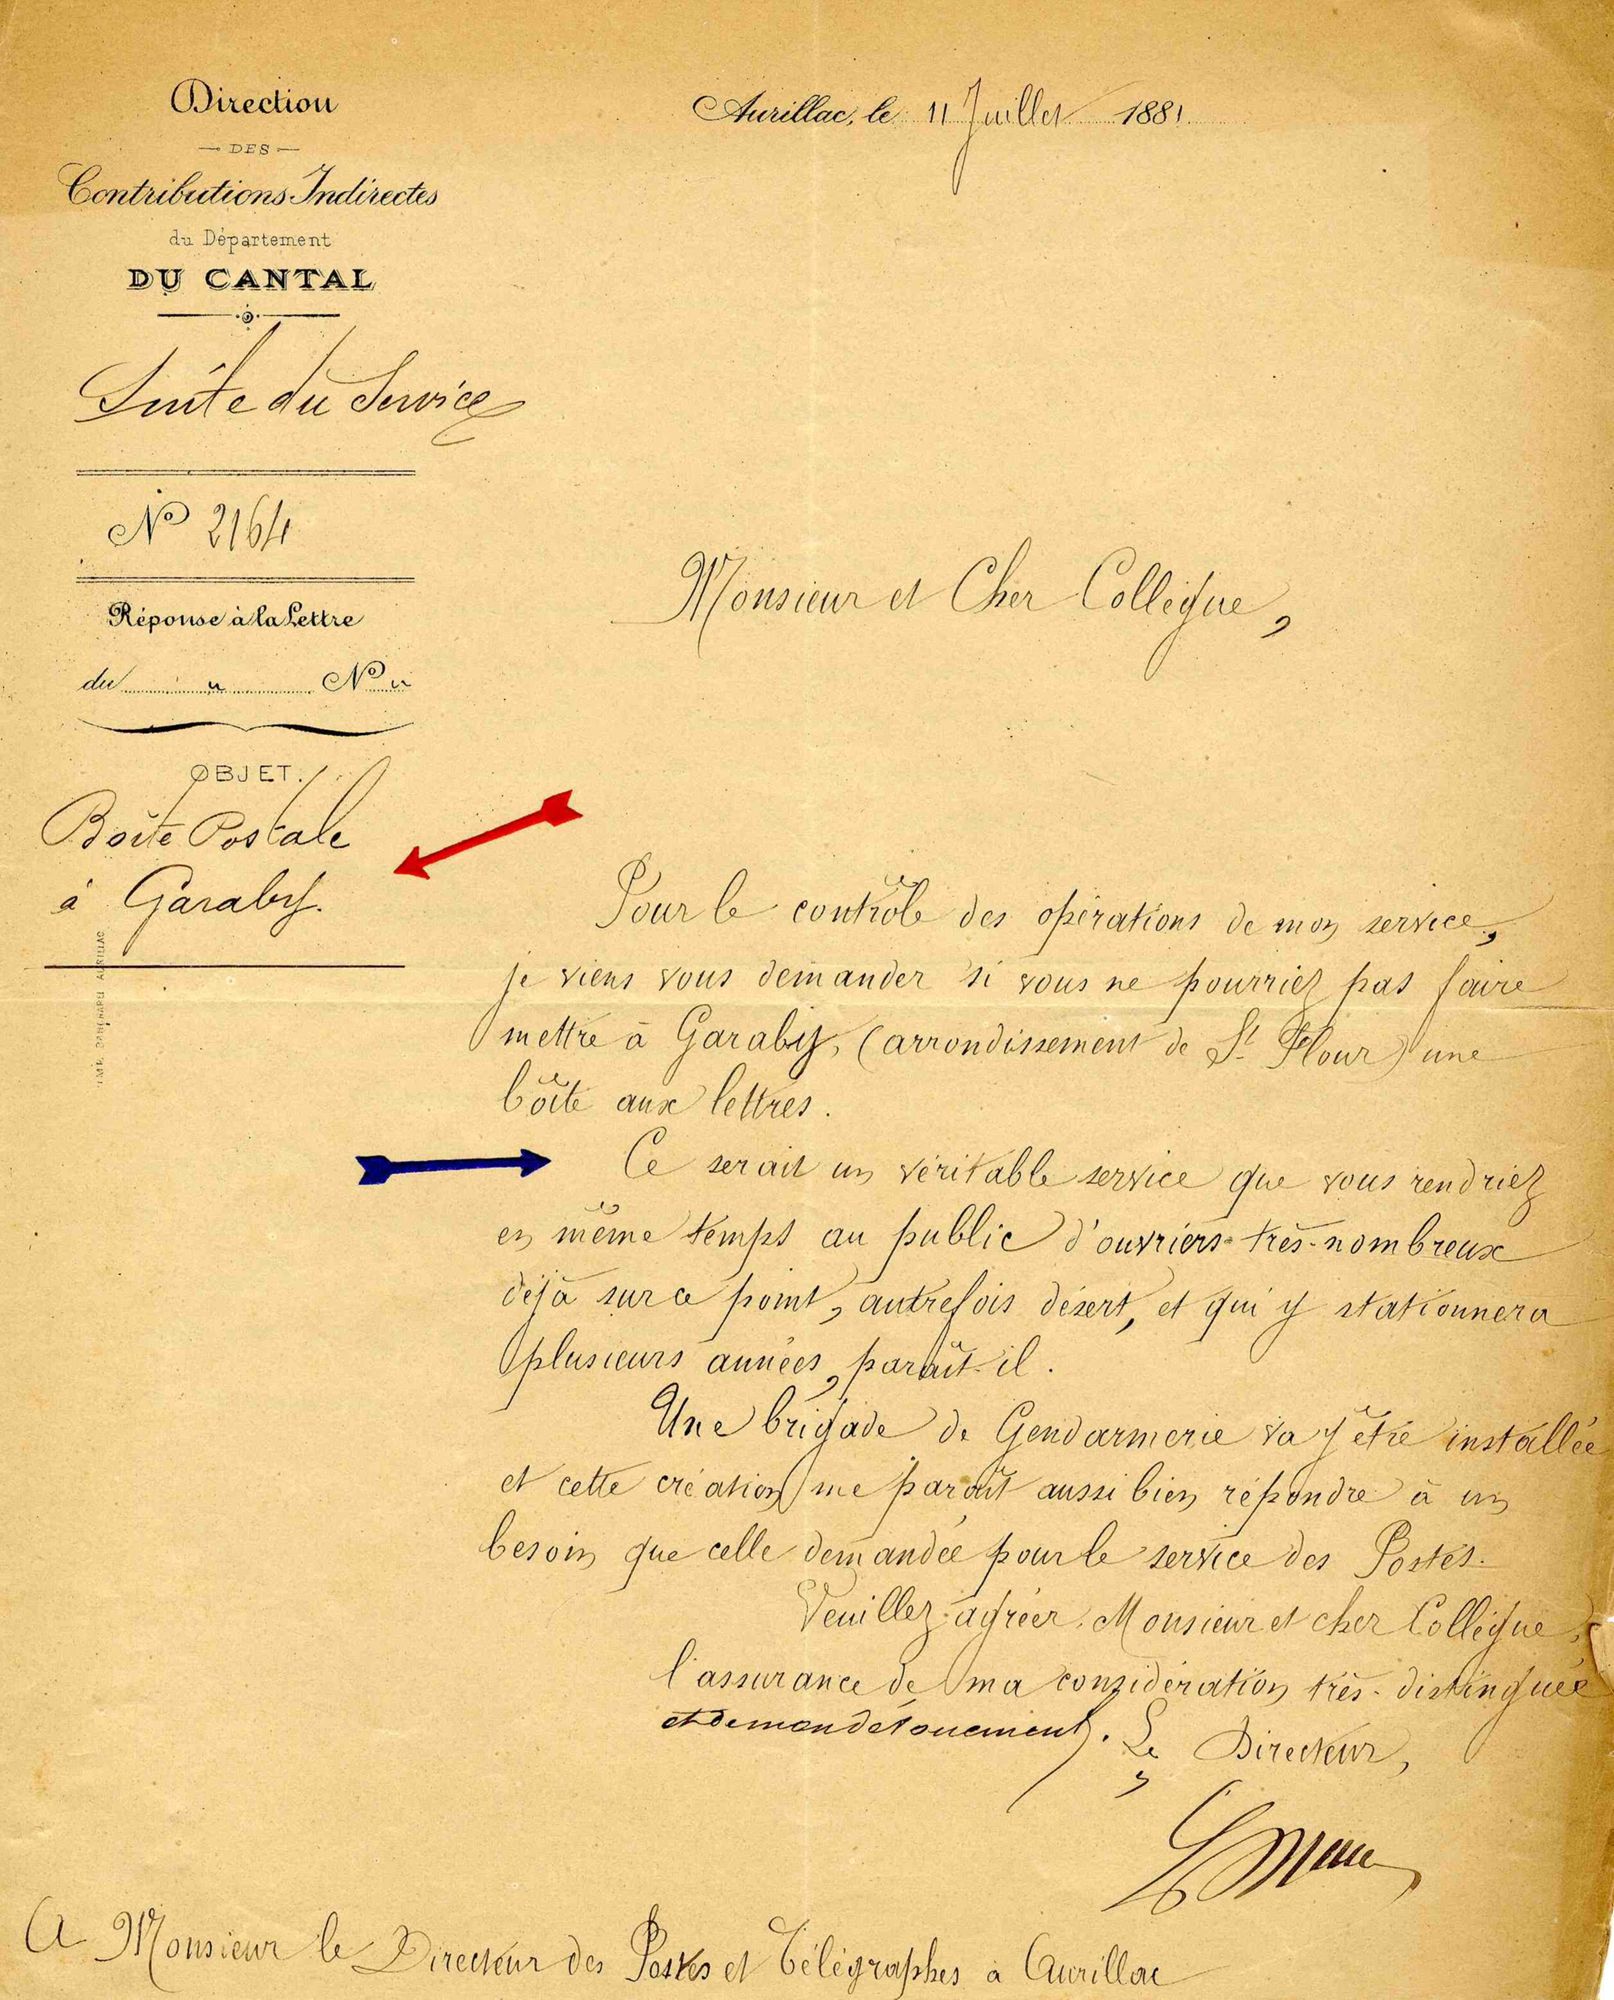 Direction
DES
Contributions Indirectes
du Département
DU CANTAL
Suite du Service
N° 2164
Réponse à la Lettre
du " N° "
OBJET.
Boîte Postale
à Garaby.
Aurillac, le 11 Juillet 1881
Monsieur et Cher Collègue,
Pour le contrôle des opérations de mon service,
je viens vous demander si vous ne pourriez pas faire
mettre à Garaby, (arrondissement de St Flour) une
boîte aux lettres.
Ce serait un véritable service que vous rendriez
en même temps au public d'ouvriers très-nombreux
déjà sur ce point, autrefois désert, et qui y stationnera
plusieurs années, paraît-il.
Une brigade de Gendarmerie va y être installée
et cette création me paraît aussi bien répondre à un
besoin que celle demandée pour le service des Postes.
Veuillez agréer, Monsieur et cher Collègue,
l'assurance de ma considération très-distinguée
et de mon dévouement.
Le Directeur,
A Monsieur le Directeur des Postes et Télégraphes à Aurillac